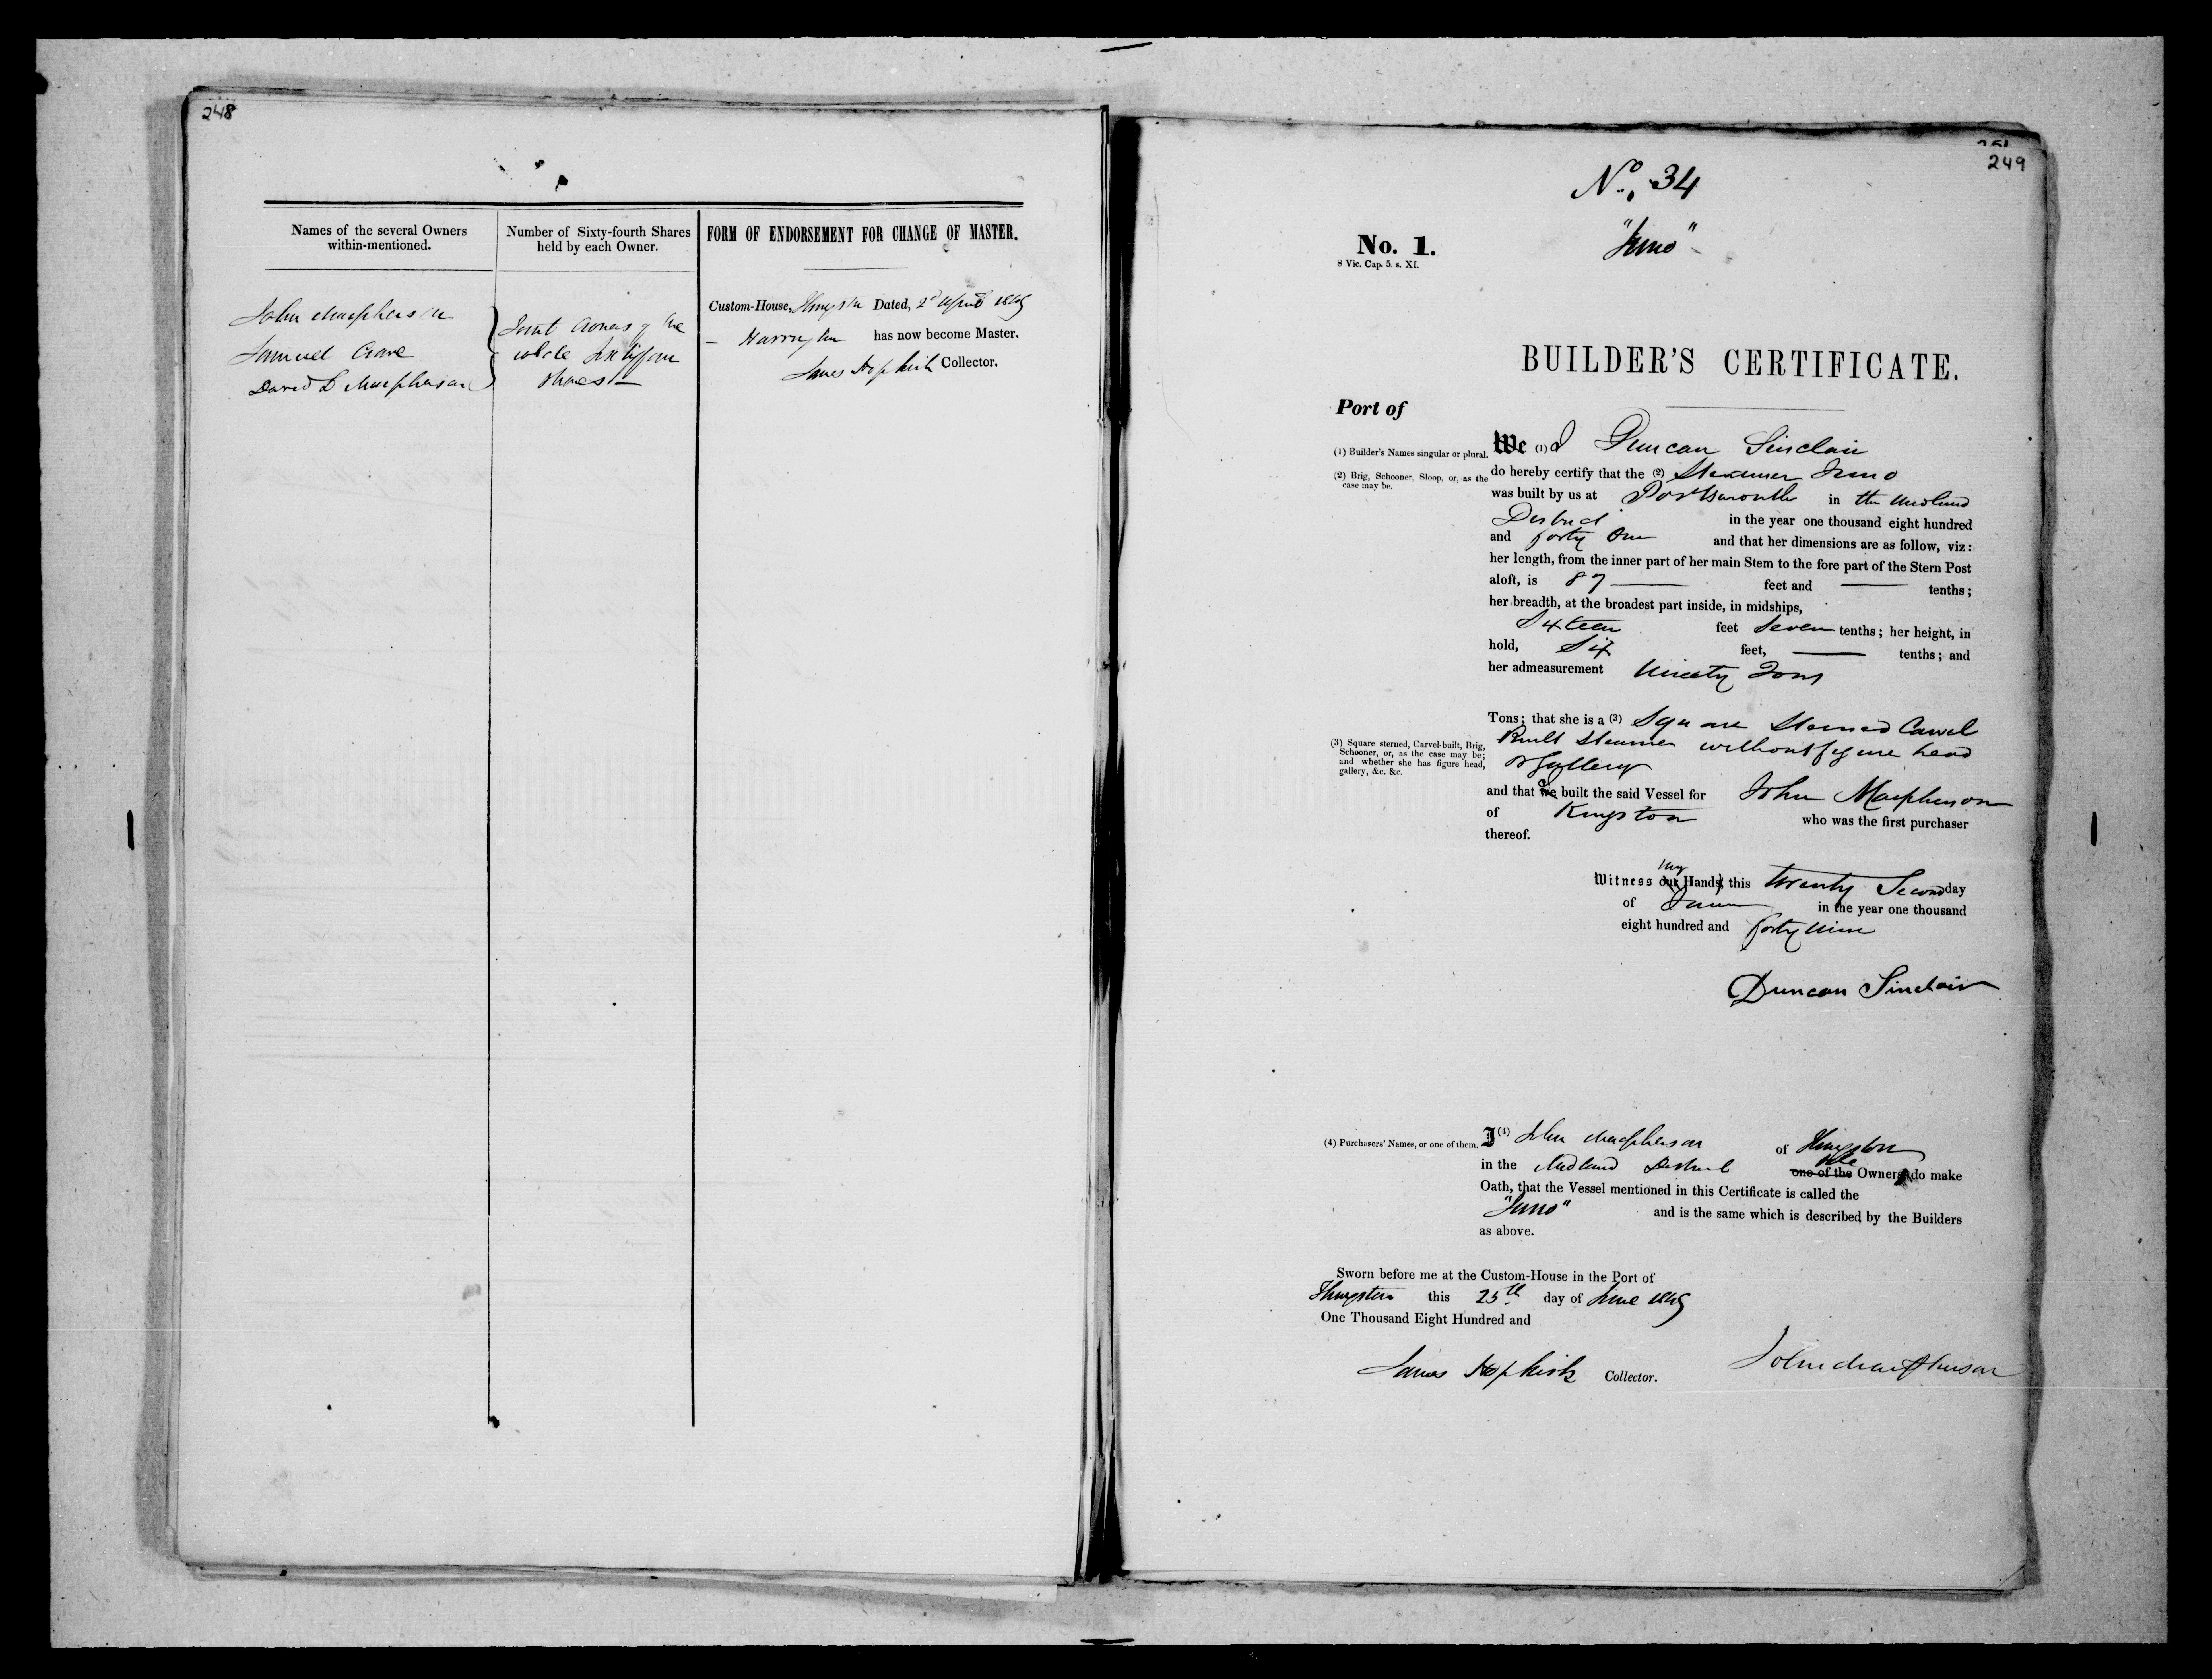 248
Names of the several Owners within-mentioned.
Number of Sixty-fourth Shares held by each Owner.
FORM OF ENDORSEMENT FOR CHANGE OF MASTER.
John Macpherson
Samuel Crane
David L Macpherson
Joint Owners of the
whole Sixtyfour
Shares
Custom-House, Kingston Dated, 2d April 1849
Harrington has now become Master.
James Hopkirk Collector.
249
No. 34
"Juno"
No. 1.
8 Vic. Cap. 5. s. XI.
BUILDER'S CERTIFICATE.
Port of
(1) Builder's Names singular or plural.
We (1) I Duncan Sinclair
(2) Brig, Schooner, Sloop, or, as the case may be.
do hereby certify that the (2) Steamer Juno
was built by us at Portsmouth in the Midland
District in the year one thousand eight hundred
and forty One and that her dimensions are as follow, viz:
her length, from the inner part of her main Stem to the fore part of the Stern Post
aloft, is 87 feet and tenths;
her breadth, at the broadest part inside, in midships,
Sixteen feet Seven tenths; her height, in
hold, Six feet, tenths; and
her admeasurement Ninety Tons
Tons; that she is a (3) Square Sterned Carvel
Built Steamer without figure head
or Gallery
(3) Square sterned, Carvel-built, Brig,
Schooner, or, as the case may be;
and whether she has figure head,
gallery, &c. &c.
and that we I built the said Vessel for John Macpherson
of Kingston who was the first purchaser
thereof.
my
Witness our Hands, this twenty Second day
of June in the year one thousand
eight hundred and forty nine
Duncan Sinclair
(4) Purchasers' Names, or one of them.
I (4) John Macpherson of Kingston
in the Midland District one of the Owners do make
Oath, that the Vessel mentioned in this Certificate is called the
"Juno" and is the same which is described by the Builders
as above.
Sworn before me at the Custom-House in the Port of
Kingston this 25th day of June 1849
One Thousand Eight Hundred and
James Hopkirk Collector.
John Macpherson